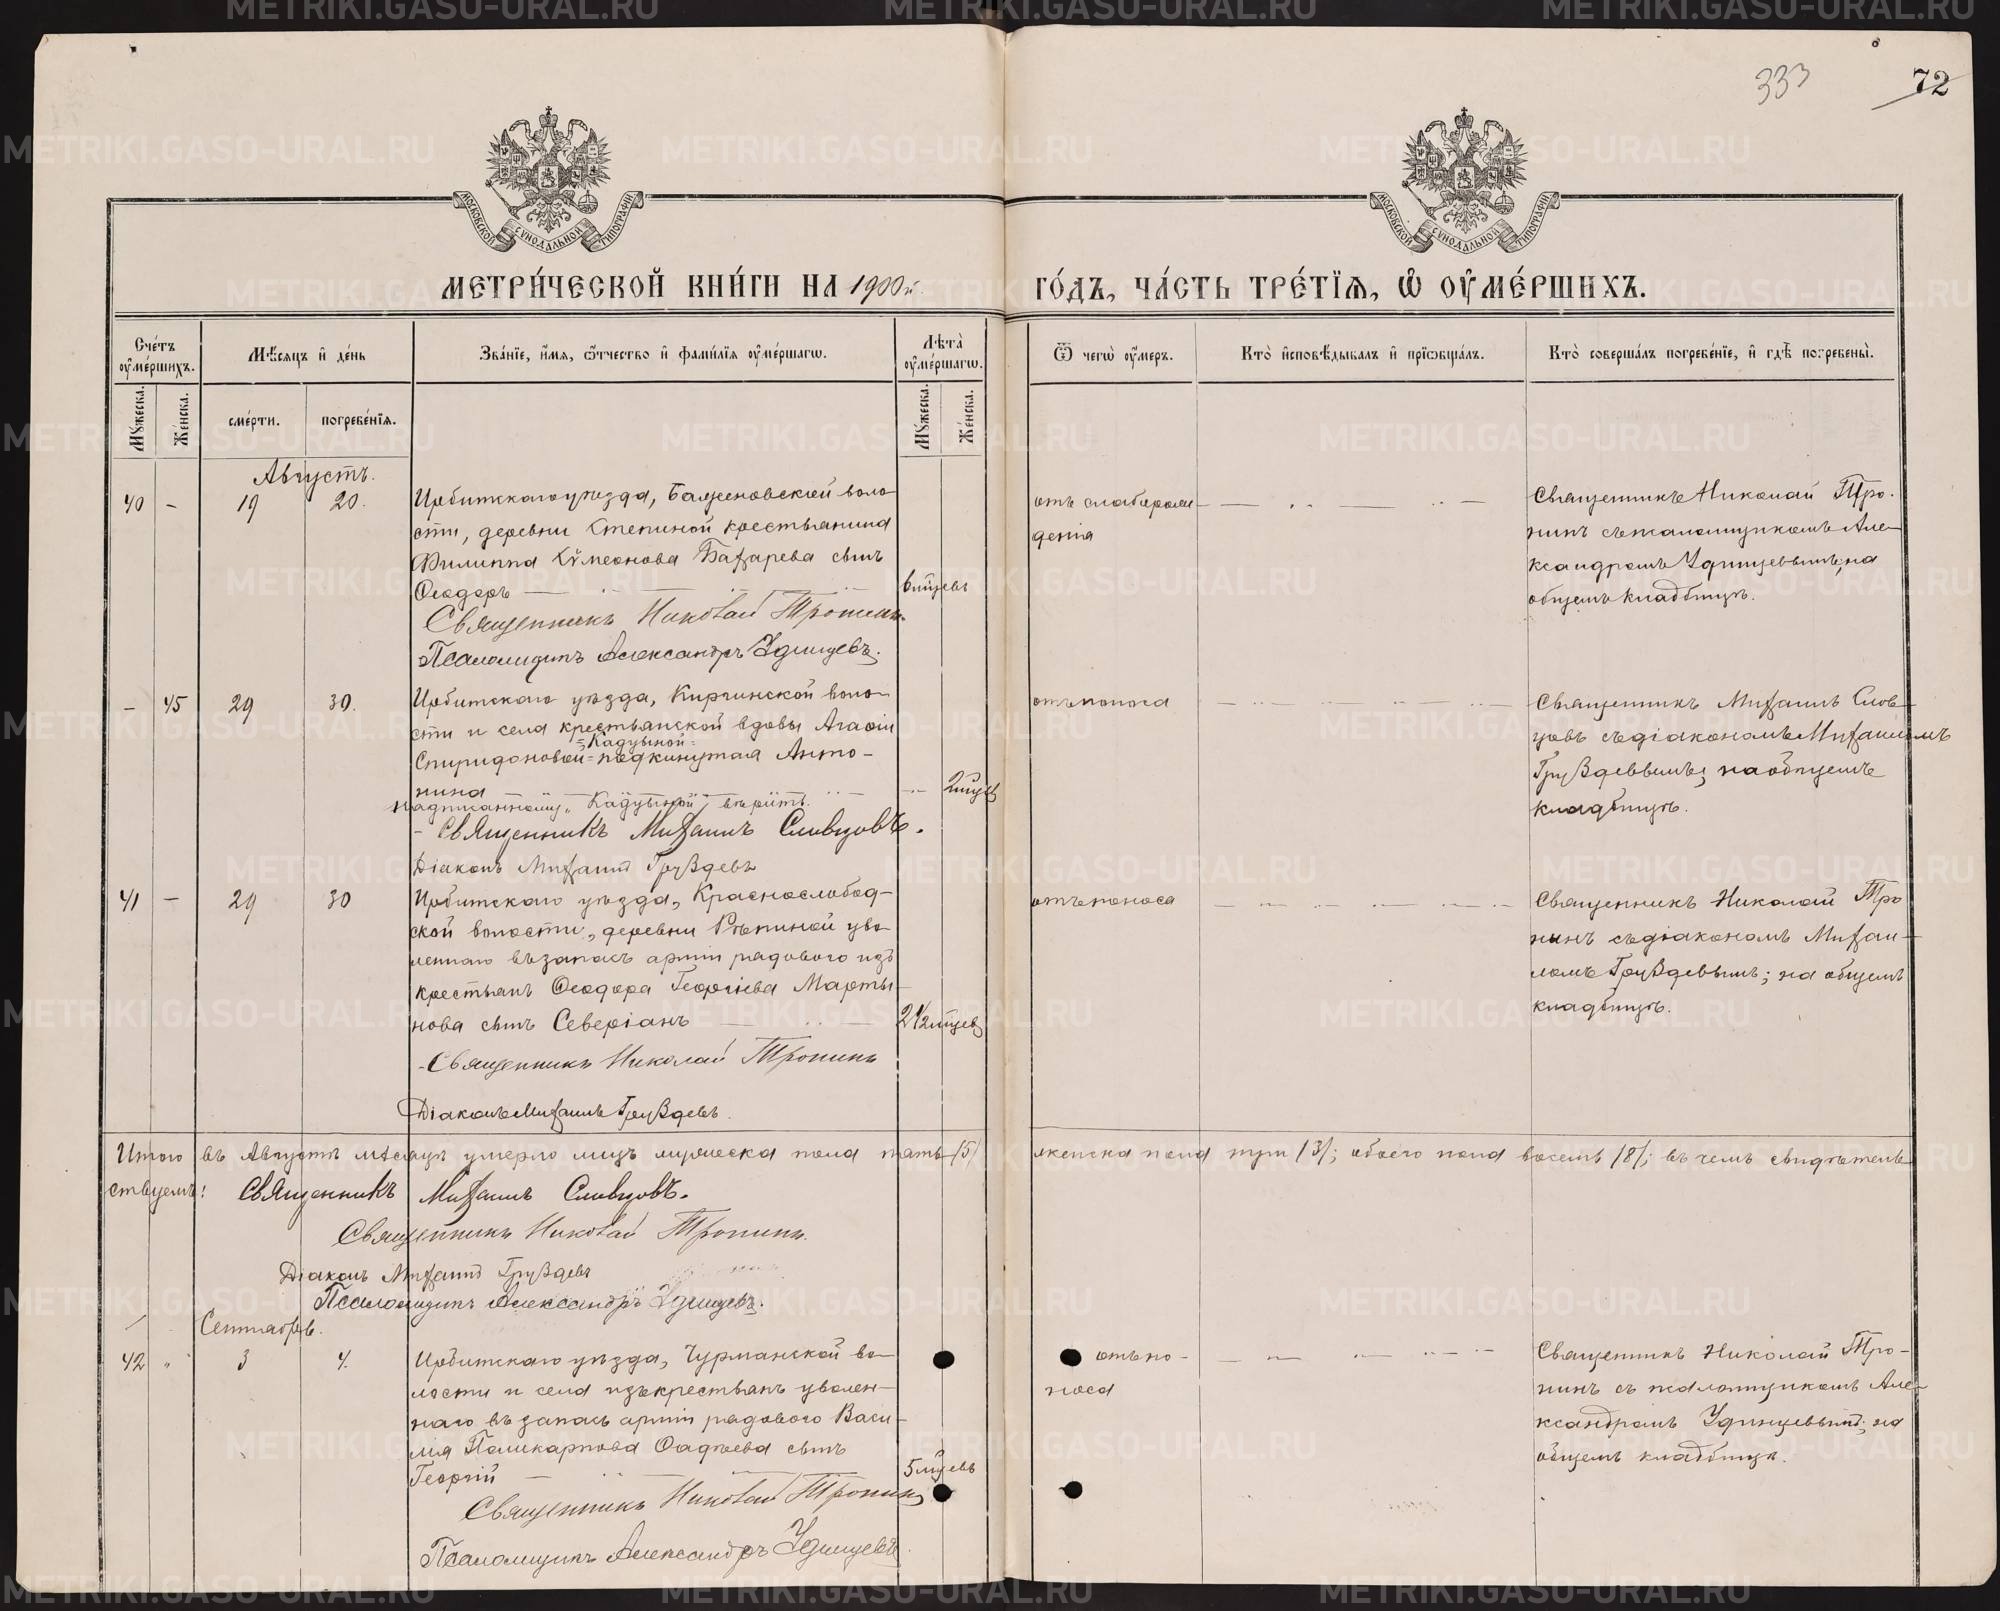 333
72
МОСКОВСКОЙ СѴНОДАЛЬНОЙ ТИПОГРАФІИ
МОСКОВСКОЙ СѴНОДАЛЬНОЙ ТИПОГРАФІИ
МЕТРИ́ЧЕСКОЙ КНИ́ГИ НА 1900й
ГО́ДЪ, ЧА́СТЬ ТРЕ́ТІѦ, Ѡ҆ ОУ҆МЕ́РШИХЪ.
Сче́тъ оу҆ме́ршихъ.
Мꙋ́жеска.
Же́нска.
Мѣ́сѧцъ и҆ де́нь
сме́рти.
погребе́нїѧ.
Зва́нїе, и҆́мѧ, ѻ҆́тчество и҆ фами́лїѧ оу҆ме́ршагѡ.
Лѣ́та оу҆ме́ршагѡ.
Мꙋ́жеска.
Же́нска.
Ѿ чегѡ̀ оу҆́меръ.
Кто̀ и҆сповѣ́дывалъ и҆ прїѡбща́лъ.
Кто̀ соверша́лъ погребе́нїе, и҆ гдѣ̀ погребены̀.
Августъ.
40 - 19 20.
Ирбитскаго уѣзда, Баженовской воло-
сти, деревни Степиной крестьянина
Филиппа Сѵмеонова Бахарева сынъ
Ѳеодоръ
6 мѣсяцевъ
Священникъ Николай Тропинъ.
Псаломщикъ Александръ Удинцевъ.
отъ слаборож-
денія
Священникъ Николай Тро-
пинъ съ псаломщикомъ Але-
ксандромъ Удинцевымъ, на
общемъ кладбищѣ.
- 45 29 30.
Ирбитскаго уѣзда, Киргинской воло-
сти и села крестьянской вдовы Агафіи
=Кадцыной=
Спиридоновой= подкинутая Анто-
нина
2 мѣсяцевъ
надписанному „Кадцыной“ вѣрить.
- Священникъ Михаилъ Словцовъ.
Діаконъ Михаилъ Груздевъ
отъ поноса
Священникъ Михаилъ Слов-
цовъ съ діакономъ Михаиломъ
Груздевымъ; на общемъ
кладбищѣ.
41 - 29 30
Ирбитскаго уѣзда, Краснослобод-
ской волости, деревни Рѣпиной уво-
леннаго въ запасъ арміи рядового изъ
крестьянъ Ѳеодора Георгіева Марты-
нова сынъ Северіанъ
2 1/2 мѣсяцевъ
- Священникъ Николай Тропинъ
Діаконъ Михаилъ Груздевъ.
отъ поноса
Священникъ Николай Тро
пинъ съ діакономъ Михаи-
ломъ Груздевымъ; на общемъ
кладбищѣ.
Итого въ Августѣ мѣсяцѣ умерло лицъ мужеска пола пять /5/
женска пола три /3/; обоего пола восемь /8/; въ чемъ свидѣтель-
ствуемъ: Священникъ Михаилъ Словцовъ.
Священникъ Николай Тропинъ.
Діаконъ Михаилъ Груздевъ
Псаломщикъ Александръ Удинцевъ.
Сентябрь.
42 " 3 4.
Ирбитскаго уѣзда, Чурманской во-
лости и села изъ крестьянъ уволен-
наго въ запасъ арміи рядового Васи-
лія Поликарпова Ѳадѣева сынъ
Георгій
5 мѣсяцевъ
Священникъ Николай Тропинъ
Псаломщикъ Александръ Удинцевъ.
отъ по-
носа
Священникъ Николай Тро-
пинъ съ псаломщикомъ Але-
ксандромъ Удинцевымъ; на
общемъ кладбищѣ.
METRIKI.GASO-URAL.RU